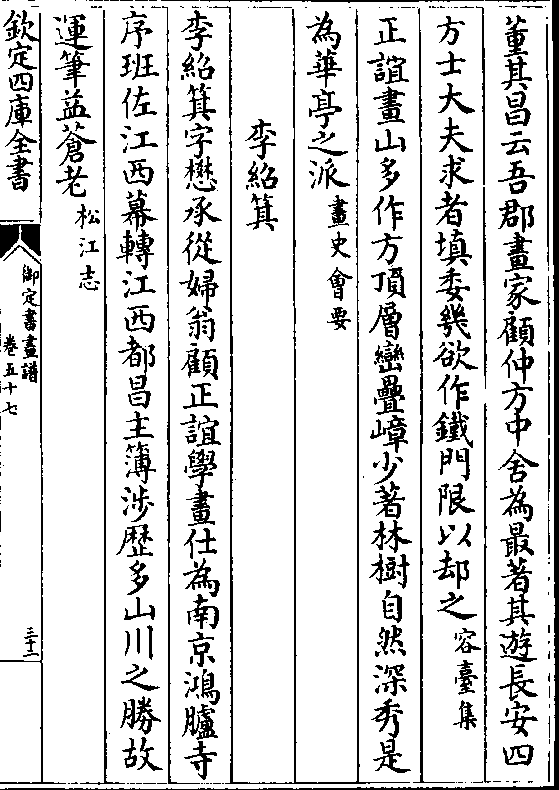 董其昌云吾郡畫家顧仲方中舍為最著其遊長安四
方士大夫求者填委幾欲作鐵門限以却之容臺集
正誼畫山多作方頂層巒疊嶂少著林樹自然深秀是
為華亭之派畫史會要
李紹箕
李紹箕字懋承從婦翁顧正誼學畫仕為南京鴻臚寺
序班佐江西幕轉江西都昌主簿涉歷多山川之勝故
運筆益蒼老松江志
欽定四庫全書
御定書畫譜
卷五十七
三十二